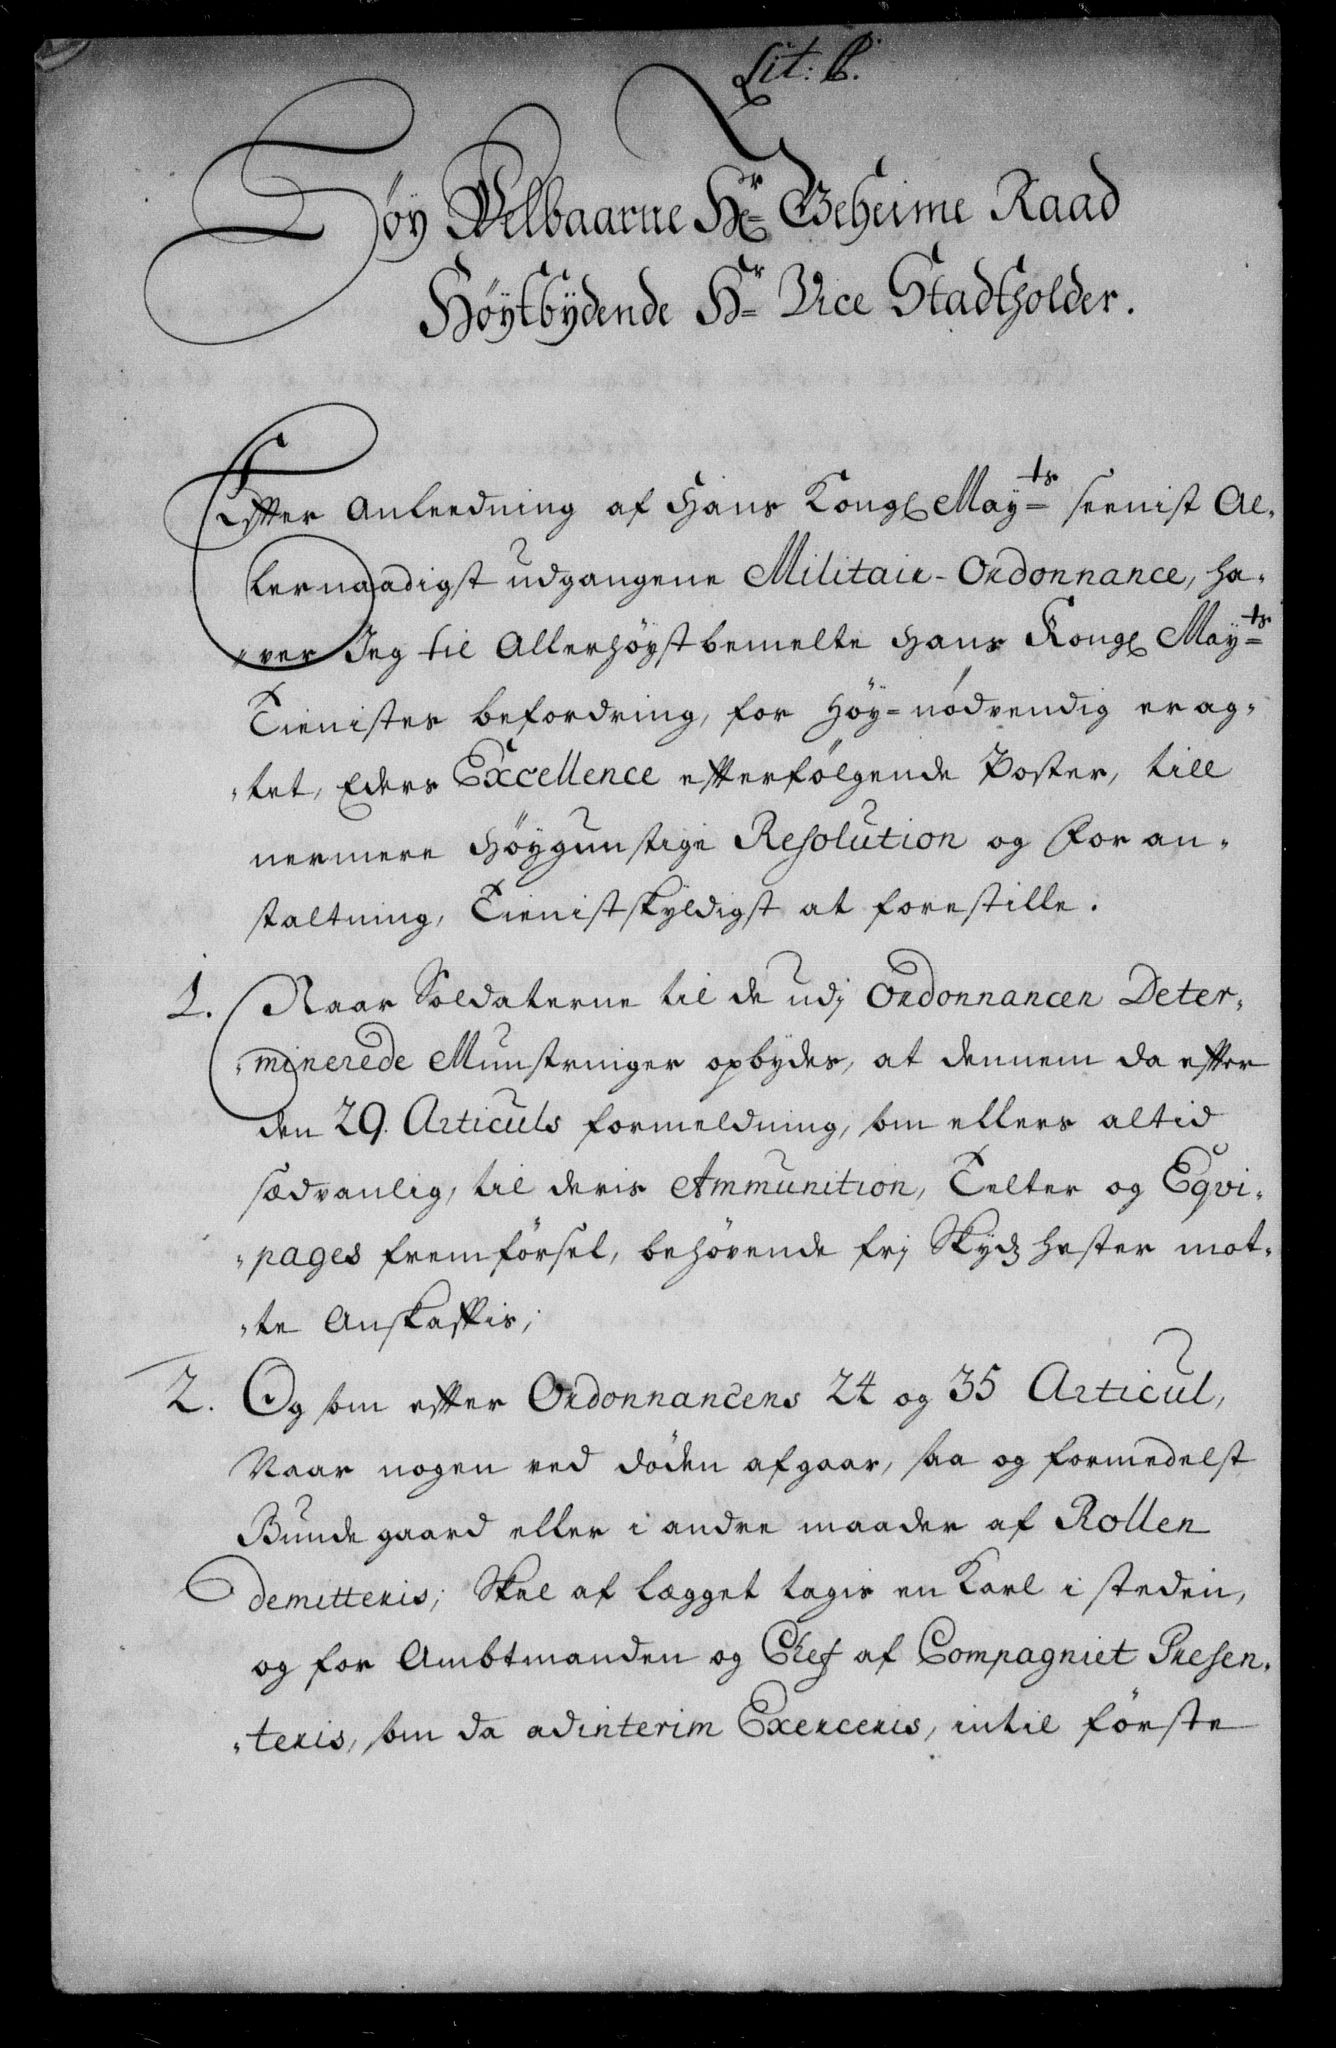 Lit: C.
Høy Velbaarne Hr Geheime Raad
Høytbydende Hr Vice Stadtholder.
Efter Anleedning af Hans Kongl Mayts seenist Al„
lernaadigst udgangene Militair-Ordonnance, ha„
„ver Jeg til Allerhøystbemelte Hans Kongl Mayts
Tienistes befordring, for Høy=nødvendig erag„
„tet, Eders Excellence efterfølgende Poster, till
nermere Høygunstige Resolution og For an„
staltning, Tienistskyldigst at forestille.
1. Naar Soldaterne til de udj Ordonnancen Deter„
„minerede Munstringer opbydes, at dennem da efter
den 29. Articuls formeldning, som ellers altid
sædvanlig, til deris Ammunition, Telter og Eqvi„
„pages fremførsel, behøvende frj Skydz hester mot„
„te Anskaffis;
2. Og som efter Ordonnancens 24 og 35 Articul,
Naar nogen ved døden afgaar, saa og formedelst
Bunde gaard eller i andre maader af Rollen
demitteris; Skal af Lægget tagis en Karl i steden,
og for Ambtmanden og Chef af Compagniet Presen„
„teris, som da ad interim Exerceris, intil første